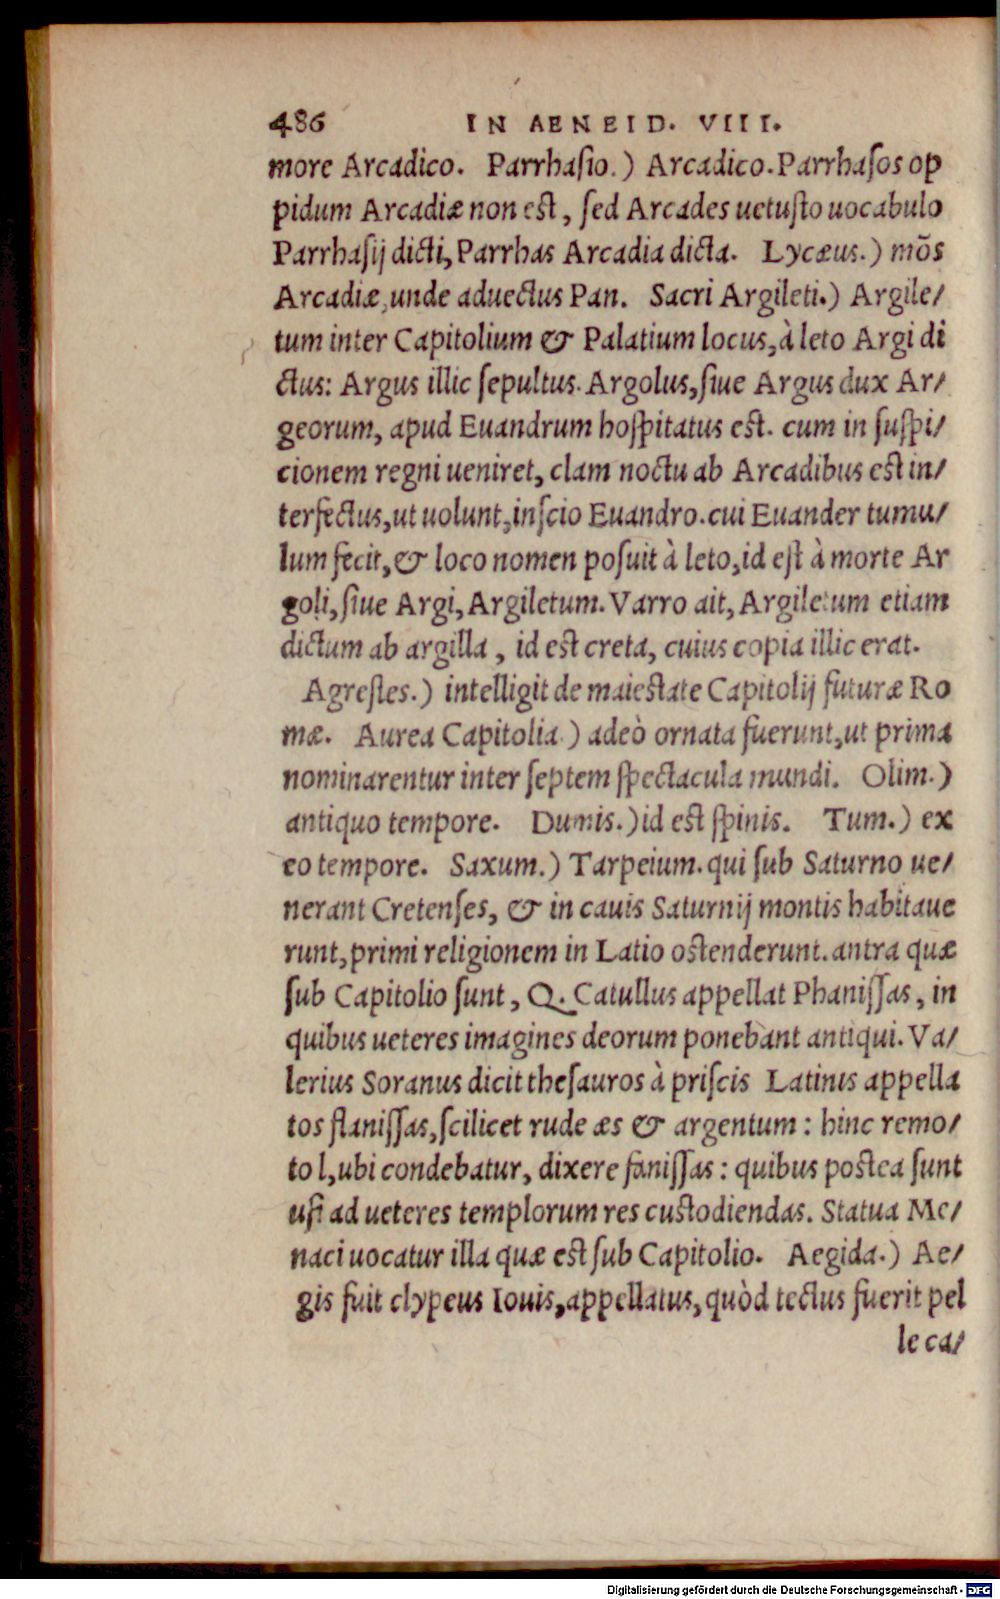 486 IN AENEID. VIII.
more Arcadico. Parrhasio.) Arcadico. Parrhasos op
pidum Arcadiæ non est, sed Arcades uetusto uocabulo
Parrhasij dicti, Parrhas Arcadia dicta. Lycæus.) mõs
Arcadiæ, unde aduectus Pan. Sacri Argileti.) Argile/
tum inter Capitolium & Palatium locus, à leto Argi di
ctus: Argus illic sepultus. Argolus, siue Argus dux Ar/
georum, apud Euandrum hospitatus est. cum in suspi/
cionem regni ueniret, clam noctu ab Arcadibus est in/
terfectus, ut uolunt, inscio Euandro. cui Euander tumu/
lum fecit, & loco nomen posuit à leto, id est à morte Ar
goli, siue Argi, Argiletum. Varro ait, Argiletum etiam
dictum ab argilla, id est creta, cuius copia illic erat.
Agrestes.) intelligit de maiestate Capitolij futuræ Ro
mæ. Aurea Capitolia.) adeò ornata fuerunt, ut prima
nominarentur inter septem spectacula mundi. Olim.)
antiquo tempore. Dumis.) id est spinis. Tum.) ex
eo tempore. Saxum.) Tarpeium. qui sub Saturno ue/
nerant Cretenses, & in cauis Saturnij montis habitaue
runt, primi religionem in Latio ostenderunt. antra quæ
sub Capitolio sunt, Q. Catullus appellat Phanissas, in
quibus ueteres imagines deorum ponebant antiqui. Va/
lerius Soranus dicit thesauros à priscis Latinis appella
tos flanissas, scilicet rude æs & argentum: hinc remo/
to l, ubi condebatur, dixere fanissas: quibus postea sunt
usi ad ueteres templorum res custodiendas. Statua Me/
naci uocatur illa quæ est sub Capitolio. Aegida.) Ae/
gis fuit clypeus Iouis, appellatus, quòd tectus fuerit pel
le ca/
Digitalisierung gefördert durch die Deutsche Forschungsgemeinschaft - DFG